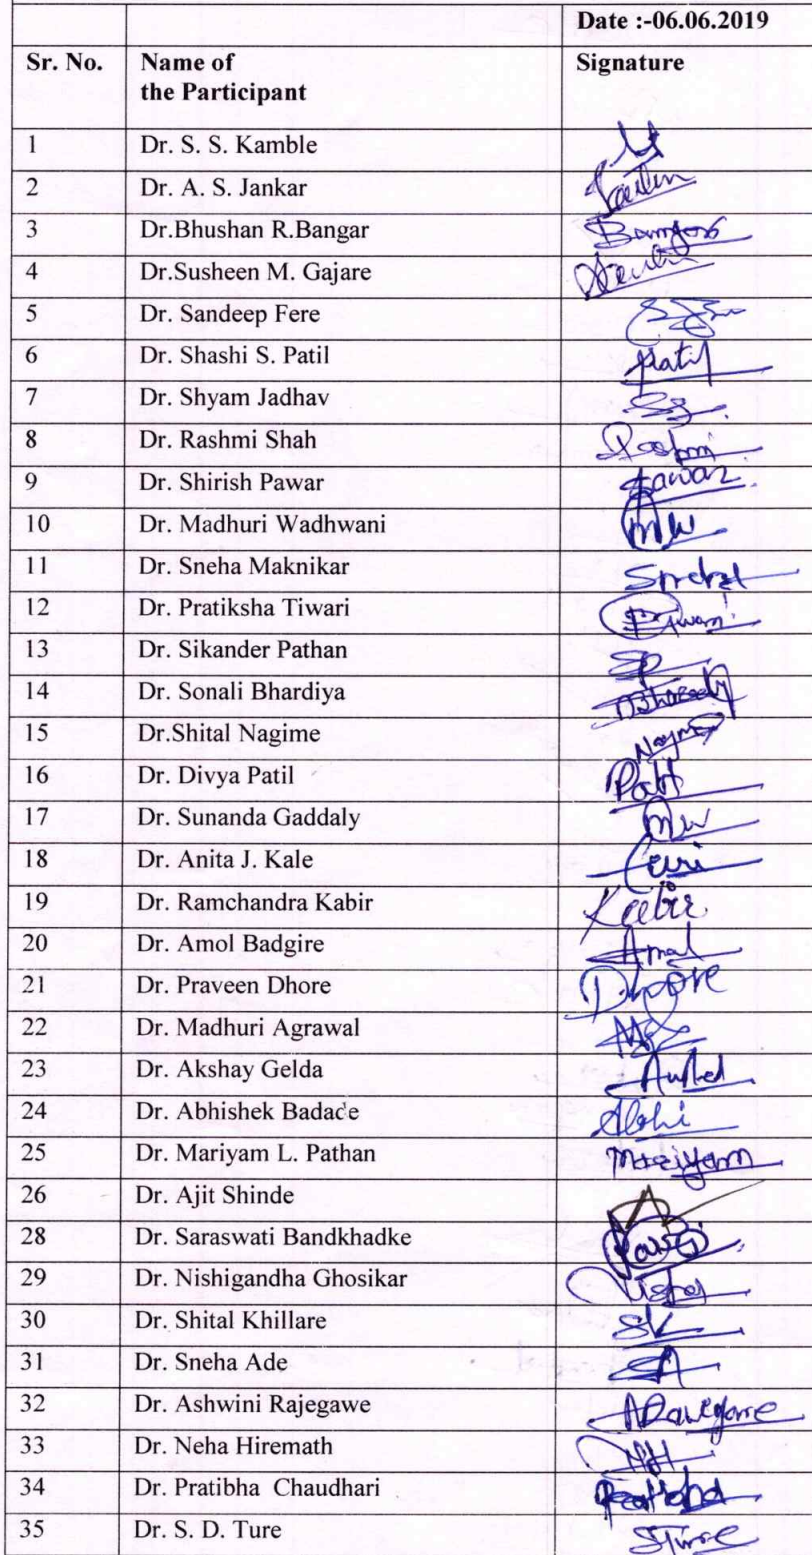 Date :-06.06.2019
Sr. No. Name of the Participant Signature
1 Dr. S. S. Kamble
2 Dr. A. S. Jankar
3 Dr.Bhushan R.Bangar
4 Dr.Susheen M. Gajare
5 Dr. Sandeep Fere
6 Dr. Shashi S. Patil Patil
7 Dr. Shyam Jadhav
8 Dr. Rashmi Shah Rashmi
9 Dr. Shirish Pawar Pawar
10 Dr. Madhuri Wadhwani MW
11 Dr. Sneha Maknikar
12 Dr. Pratiksha Tiwari
13 Dr. Sikander Pathan SP
14 Dr. Sonali Bhardiya
15 Dr.Shital Nagime
16 Dr. Divya Patil
17 Dr. Sunanda Gaddaly
18 Dr. Anita J. Kale
19 Dr. Ramchandra Kabir Kabir
20 Dr. Amol Badgire Amol
21 Dr. Praveen Dhore Dhore
22 Dr. Madhuri Agrawal
23 Dr. Akshay Gelda
24 Dr. Abhishek Badade Abhi
25 Dr. Mariyam L. Pathan Mariyam
26 Dr. Ajit Shinde
28 Dr. Saraswati Bandkhadke
29 Dr. Nishigandha Ghosikar
30 Dr. Shital Khillare SK
31 Dr. Sneha Ade SA
32 Dr. Ashwini Rajegawe
33 Dr. Neha Hiremath NH
34 Dr. Pratibha Chaudhari
35 Dr. S. D. Ture STure